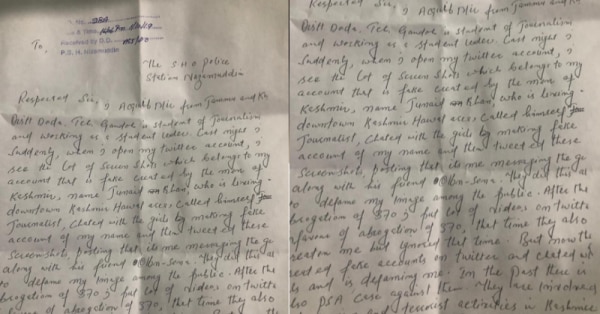 No.
Received by D.O.
P.S. H. Nizamuddin
To,
The SHO Police
Station Nizamuddin
Respected Sir, I Aqib Mir from Jammu and
Distt Doda. Teh. Gandoh is student of Journalism
and working as a student leader. Last night I
Suddenly, when I open my twitter account, I
see the lot of Screen Shots which belongs to my
account that is fake created by the man of
Keshmir, name Junaid Khan, who is living
downtown Kashmir Hawal area, Called himself
Journalist, Chated with the girls by making fake
account of my name and then tweed of these
Screenshots, posting that its me messaging the
along with his friend
to defame my Image among the public. After the
abrogation of 370 I put lot of videos on twitte
favour of abrogation of 370, that time they also
Respected Sir, I from Jammu and
Distt Doda. Teh. Gandoh is student of Journalism
and working as a student leader. Last night I
Suddenly, when I open my twitter account, I
see the lot of Screen Shots which belongs to my
account that is fake created by the man of
Keshmir, name Junaid Khan, who is living
downtown Kashmir Hawal area, Called himself
Journalist, Chated with the girls by making fake
account of my name and then tweed of these
Screenshots, posting that its me messaging the
along with his friend this as
to defame my Image among the public. After the
abrogation of 370 I put lot of videos on twitte
favour of abrogation of 370, that time they also
me but ignored that time. But now the
fake accounts on twitter and chated wit
and is defaming me. In the Past there is
also PSA Case against them. They are Involvness
and terrorist activities in Kashmir